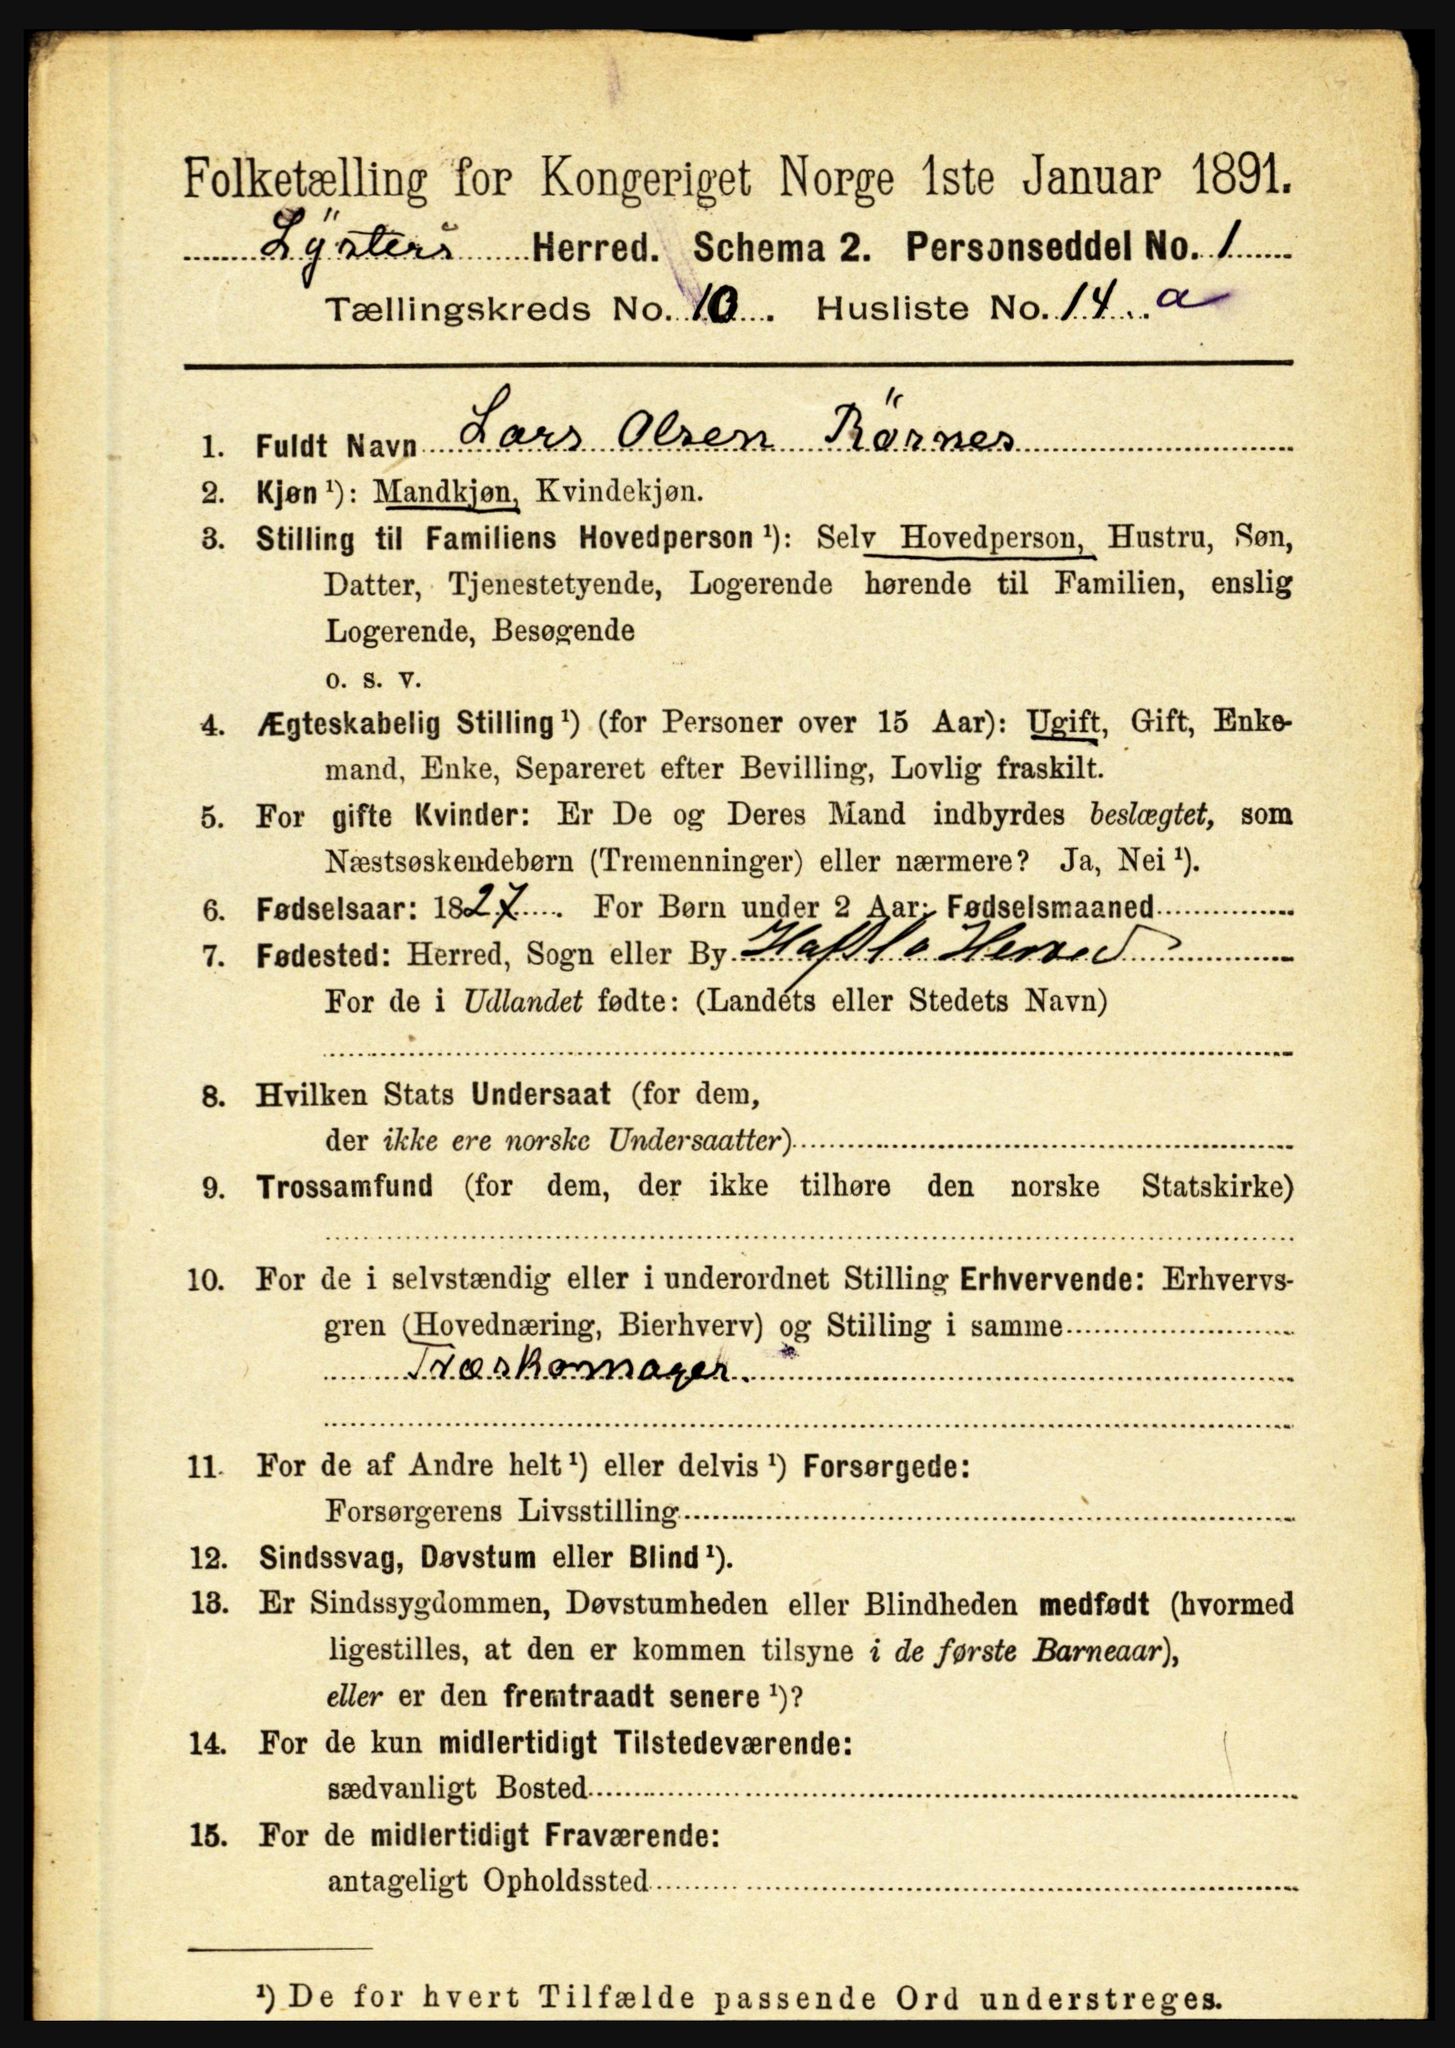 Folketælling for Kongeriget Norge 1ste Januar 1891.
Lÿsters Herred. Schema 2. Personseddel No. 1
Tællingskreds No. 10. Husliste No. 14 a
1. Fuldt Navn Lars Olsen Rörnes
2. Kjøn ¹): Mandkjøn, Kvindekjøn.
3. Stilling til Familiens Hovedperson ¹): Selv Hovedperson, Hustru, Søn,
Datter, Tjenestetyende, Logerende hørende til Familien, enslig
Logerende, Besøgende
o. s. v.
4. Ægteskabelig Stilling ¹) (for Personer over 15 Aar): Ugift, Gift, Enke-
mand, Enke, Separeret efter Bevilling, Lovlig fraskilt.
5. For gifte Kvinder: Er De og Deres Mand indbyrdes beslægtet, som
Næstsøskendebørn (Tremenninger) eller nærmere? Ja, Nei ¹).
6. Fødselsaar: 1827. For Børn under 2 Aar: Fødselsmaaned
7. Fødested: Herred, Sogn eller By Hafslo Herred
For de i Udlandet fødte: (Landets eller Stedets Navn)
8. Hvilken Stats Undersaat (for dem,
der ikke ere norske Undersaatter)
9. Trossamfund (for dem, der ikke tilhøre den norske Statskirke)
10. For de i selvstændig eller i underordnet Stilling Erhvervende: Erhvervs-
gren (Hovednæring, Bierhverv) og Stilling i samme
Træskomager.
11. For de af Andre helt ¹) eller delvis ¹) Forsørgede:
Forsørgerens Livsstilling
12. Sindssvag, Døvstum eller Blind ¹).
13. Er Sindssygdommen, Døvstumheden eller Blindheden medfødt (hvormed
ligestilles, at den er kommen tilsyne i de første Barneaar),
eller er den fremtraadt senere ¹)?
14. For de kun midlertidigt Tilstedeværende:
sædvanligt Bosted
15. For de midlertidigt Fraværende:
antageligt Opholdssted
¹) De for hvert Tilfælde passende Ord understreges.